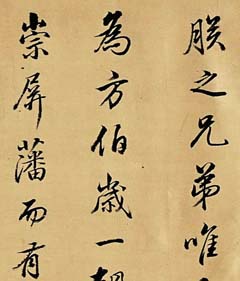 朕之兄弟唯
為方伯歲一朝
崇屏藩而有